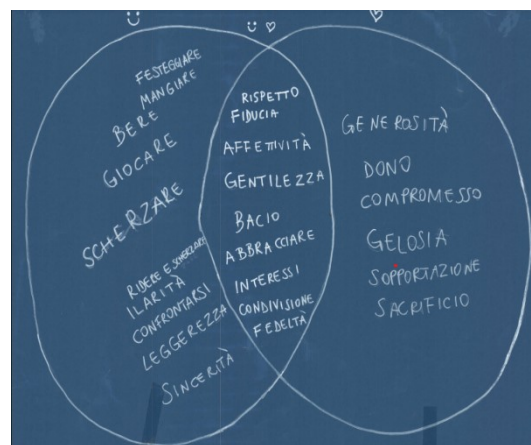 FESTEGGIARE
MANGIARE
BERE
GIOCARE
SCHERZARE
RIDERE E SCHERZARE
ILARITÀ
CONFRONTARSI
LEGGEREZZA
SINCERITÀ
RISPETTO
FIDUCIA
AFFETTIVITÀ
GENTILEZZA
BACIO
ABBRACCIARE
INTERESSI
CONDIVISIONE
FEDELTÀ
GENEROSITÀ
DONO
COMPROMESSO
GELOSIA
SOPPORTAZIONE
SACRIFICIO